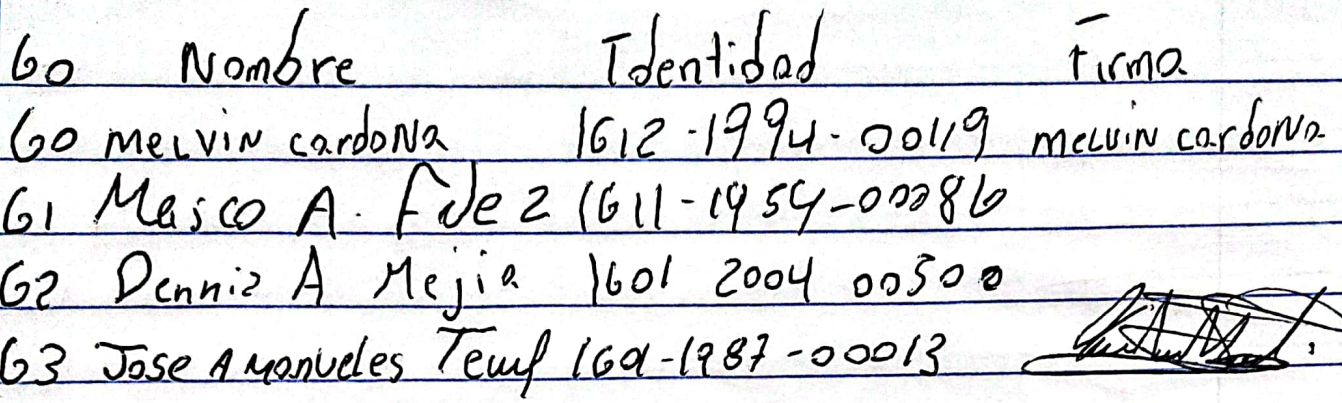 60 Nombre Identidad Firma
60 Melvin cardona 1612-1994-00119 melvin cardona
61 Masco A. Fdez 1611-1954-00086
62 Denniz A Mejia 1601 2004 00500
63 Jose A Manueles 1601-1987-00013